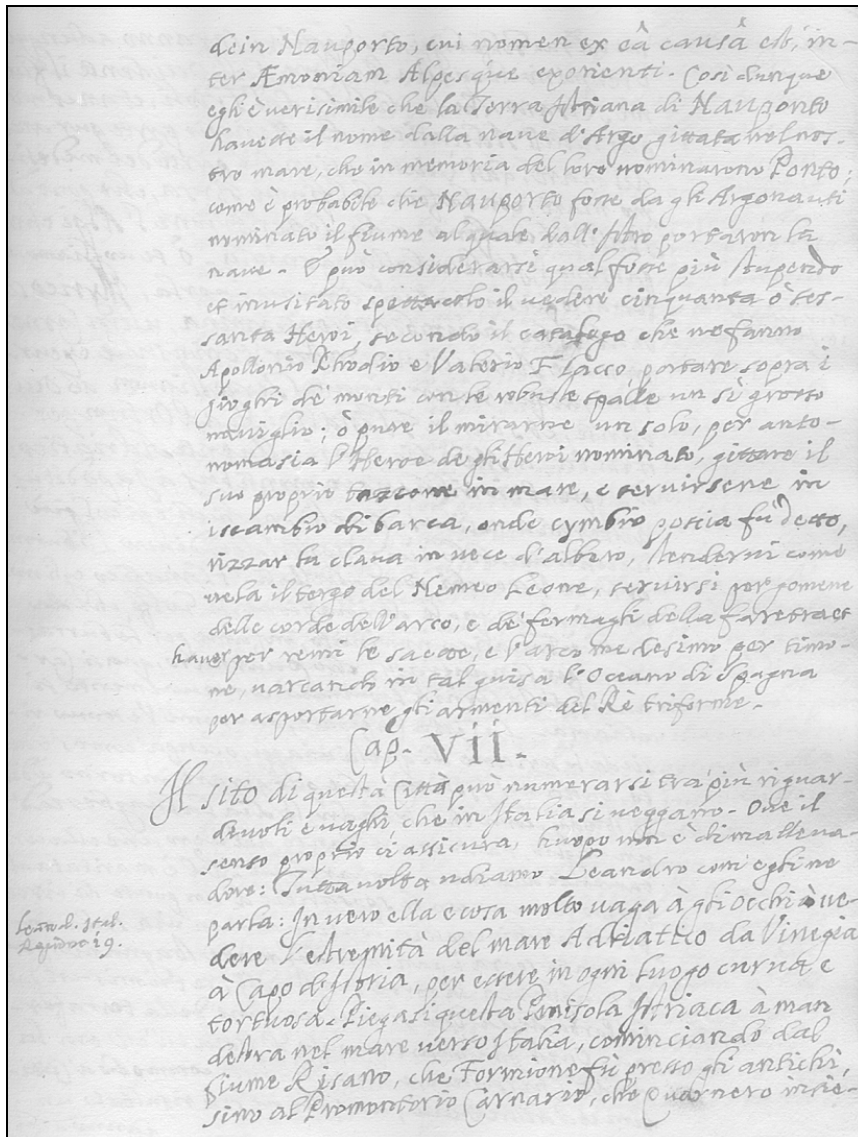 dein Nauporto, cui nomen ex eâ causâ est, in-
ter Æmoniam Alpesque exorienti. Così dunque
egli è verisimile che la Terra Istriana di Nauponto
havesse il nome dalla nave d'Argo gittata nel nos-
tro mare, che in memoria del loro nominarono Ponto;
come è probabile che Nauporto fosse da gli Argonauti
nominato il fiume al quale dall'Istro portaron la
nave. E può considerarsi qual fosse più stupendo
et inusitato spettacolo il vedere cinquanta ò ses-
santa Heroi, secondo il catalogo che ne fanno
Apollonio Rhodio e Valerio Flacco portare sopra i
gioghi de' monti con le robuste spalle un sì grosso
naviglio; ò pure il mirarne un solo, per anto-
nomasia l'Heroe degli Heroi nominato, gittare il
suo proprio in mare, e servirsene in
iscambio di barca, onde cymbio poscia fù detto,
rizzar la clava in vece d'albero, stendervi come
vela il tergo del Nemeo Leone, servirsi per
delle corde dell'arco, e de' fermagli della faretra et
haver per remi le saette, e l'arco medesimo per timo-
ne, varcando in tal guisa l'Oceano di Spagna
per asportarne gli armenti del Rè triforme.
Cap. VII.
Il sito di questa Città può numerarsi tra' più riguar-
divoli e vaghi, che in Italia si veggano. Ove il
senso proprio ci assicura, huopo non è di malleva-
dore: Tuttavolta udiamo Leandro com' egli ne
parla: In vero ella è cosa molto vaga à gli occhi à ve-
Leand. Ital.
Reg. 19.
dere l'estremità del mare Adriatico da Vinegia
à Capo d'Istria, per essere in ogni luogo curva e
tortuosa. Piegasi questa Penisola Istriaca à man
destra nel mare verso Italia, cominciando dal
fiume Risano, che Formione fù presso gli antichi,
sino al Promontorio Carnario, che Quarnero insie-